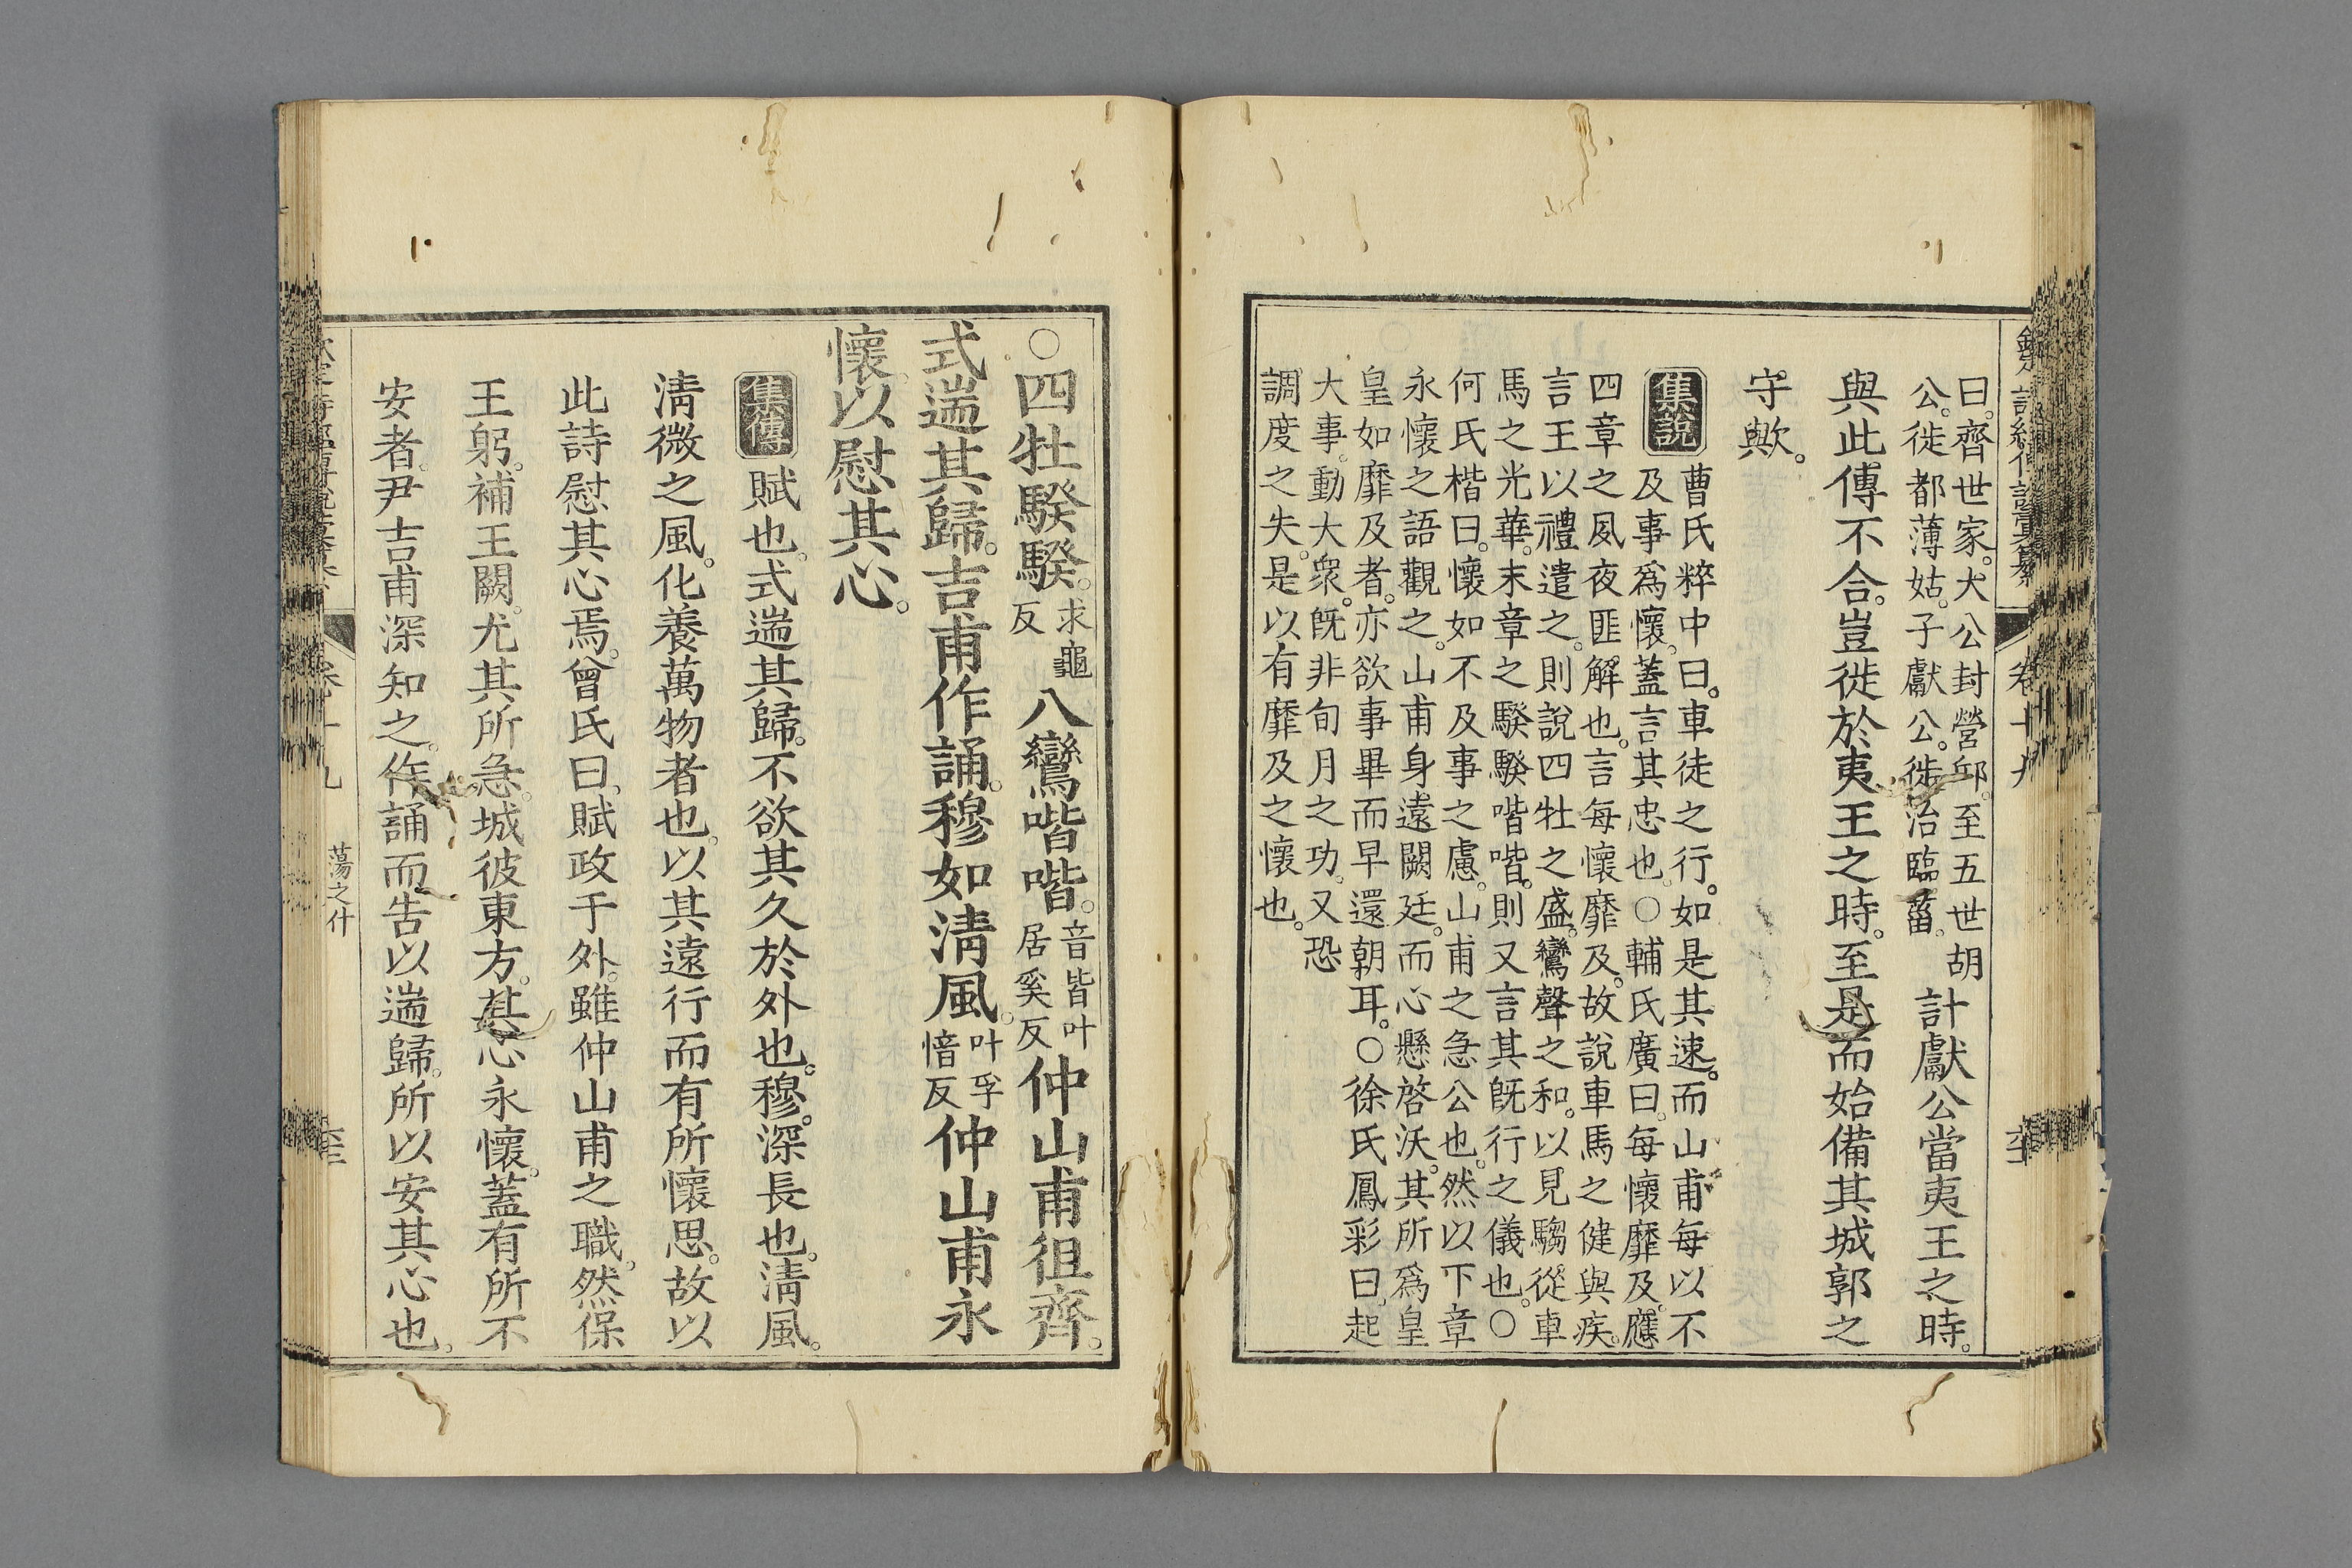 曰。齊世家。大公封營邱。至五世胡
公。徙都薄姑。子獻公。徙治臨菑。
計獻公當夷王之時。
與此傳不合。豈徙於夷王之時。至是而始備其城郭之
守歟。
集說
曹氏粹中曰。車徒之行。如是其速。而山甫每以不
及事爲懷。蓋言其忠也。○輔氏廣曰。每懷靡及。應
四章之夙夜匪解也。言每懷靡及。故說車馬之健與疾。
言王以禮遣之。則說四牡之盛。鸞聲之和。以見騶從車
馬之光華。末章之騤騤喈喈。則又言其旣行之儀也。○
何氏楷曰。懷如不及事之慮。山甫之急公也。然以下章
永懷之語觀之。山甫身遠闕廷。而心懸啓沃。其所爲皇
皇如靡及者。亦欲事畢而早還朝耳。○徐氏鳳彩曰。起
大事。動大衆。旣非旬月之功。又恐
調度之失。是以有靡及之懷也。
卷十九
○四牡騤騤。求龜反八鸞喈喈。音皆叶居奚反仲山甫徂齊。
式遄其歸。吉甫作誦。穆如淸風。叶孚愔反仲山甫永
懷。以慰其心。
集傳
賦也。式遄其歸。不欲其久於外也。穆。深長也。淸風。
淸微之風。化養萬物者也。以其遠行而有所懷思。故以
此詩慰其心焉。曾氏曰。賦政于外。雖仲山甫之職。然保
王躬。補王闕。尤其所急。城彼東方。其心永懷。蓋有所不
安者。尹吉甫深知之。作誦而告以遄歸。所以安其心也。
蕩之什